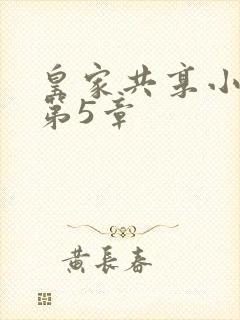 皇家共享小
第5章
黄長春